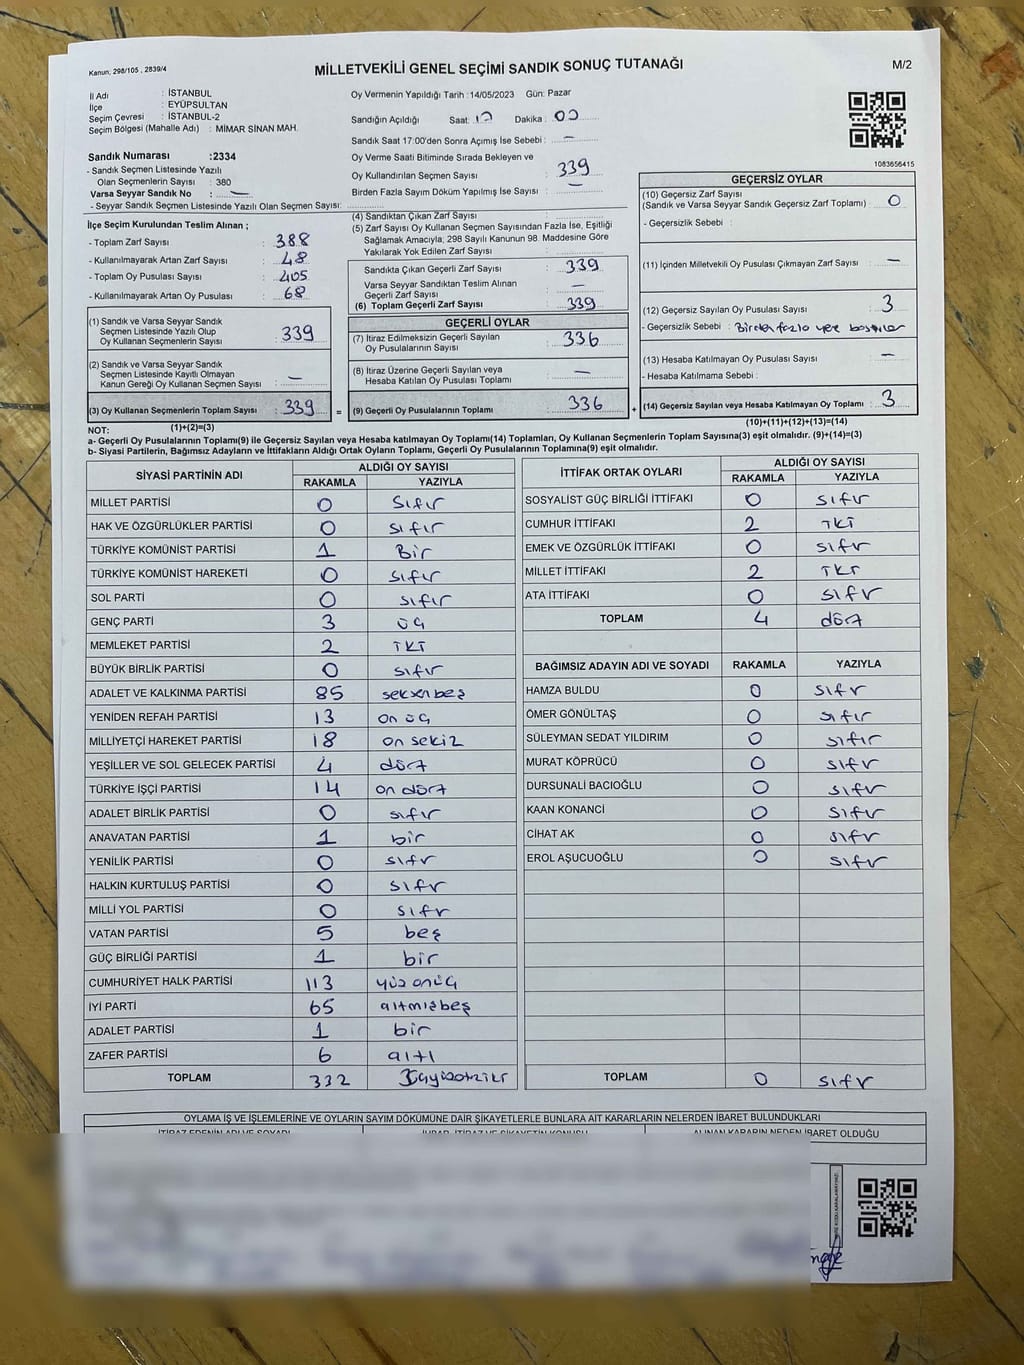 Kanun: 298/105 , 2839/4
MİLLETVEKİLİ GENEL SEÇİMİ SANDIK SONUÇ TUTANAĞI
M/2
İl Adı : İSTANBUL
İlçe : EYÜPSULTAN
Seçim Çevresi : İSTANBUL-2
Seçim Bölgesi (Mahalle Adı) : MİMAR SİNAN MAH.
Sandık Numarası :2334
- Sandık Seçmen Listesinde Yazılı
Olan Seçmenlerin Sayısı : 380
Varsa Seyyar Sandık No : —
- Seyyar Sandık Seçmen Listesinde Yazılı Olan Seçmen Sayısı:
Oy Vermenin Yapıldığı Tarih :14/05/2023 Gün: Pazar
Sandığın Açıldığı Saat: Dakika : 00
Sandık Saat 17:00'den Sonra Açımış İse Sebebi : —
Oy Verme Saati Bitiminde Sırada Bekleyen ve
Oy Kullandırılan Seçmen Sayısı : 339
Birden Fazla Sayım Döküm Yapılmış İse Sayısı : —
1083656415
İlçe Seçim Kurulundan Teslim Alınan ;
- Toplam Zarf Sayısı : 388
- Kullanılmayarak Artan Zarf Sayısı : 48
- Toplam Oy Pusulası Sayısı : 405
- Kullanılmayarak Artan Oy Pusulası : 68
(1) Sandık ve Varsa Seyyar Sandık
Seçmen Listesinde Yazılı Olup
Oy Kullanan Seçmenlerin Sayısı : 339
(2) Sandık ve Varsa Seyyar Sandık
Seçmen Listesinde Kayıtlı Olmayan
Kanun Gereği Oy Kullanan Seçmen Sayısı : —
(3) Oy Kullanan Seçmenlerin Toplam Sayısı : 339 =
(1)+(2)=(3)
(4) Sandıktan Çıkan Zarf Sayısı :
(5) Zarf Sayısı Oy Kullanan Seçmen Sayısından Fazla İse, Eşitliği
Sağlamak Amacıyla; 298 Sayılı Kanunun 98. Maddesine Göre
Yakılarak Yok Edilen Zarf Sayısı :
Sandıkta Çıkan Geçerli Zarf Sayısı : 339
Varsa Seyyar Sandıktan Teslim Alınan
Geçerli Zarf Sayısı : —
(6) Toplam Geçerli Zarf Sayısı : 339
GEÇERLİ OYLAR
(7) İtiraz Edilmeksizin Geçerli Sayılan
Oy Pusulalarının Sayısı : 336
(8) İtiraz Üzerine Geçerli Sayılan veya
Hesaba Katılan Oy Pusulası Toplamı : —
(9) Geçerli Oy Pusulalarının Toplamı : 336 +
GEÇERSİZ OYLAR
(10) Geçersiz Zarf Sayısı
(Sandık ve Varsa Seyyar Sandık Geçersiz Zarf Toplamı) : 0
- Geçersizlik Sebebi :
(11) İçinden Milletvekili Oy Pusulası Çıkmayan Zarf Sayısı : —
(12) Geçersiz Sayılan Oy Pusulası Sayısı : 3
- Geçersizlik Sebebi : Birden fazla yere
(13) Hesaba Katılmayan Oy Pusulası Sayısı : —
- Hesaba Katılmama Sebebi :
(14) Geçersiz Sayılan veya Hesaba Katılmayan Oy Toplamı : 3
(10)+(11)+(12)+(13)=(14)
NOT:
a- Geçerli Oy Pusulalarının Toplamı(9) ile Geçersiz Sayılan veya Hesaba katılmayan Oy Toplamı(14) Toplamları, Oy Kullanan Seçmenlerin Toplam Sayısına(3) eşit olmalıdır. (9)+(14)=(3)
b- Siyasi Partilerin, Bağımsız Adayların ve İttifakların Aldığı Ortak Oyların Toplamı, Geçerli Oy Pusulalarının Toplamına(9) eşit olmalıdır.
SİYASİ PARTİNİN ADI
ALDIĞI OY SAYISI
RAKAMLA YAZIYLA
MİLLET PARTİSİ 0 sıfır
HAK VE ÖZGÜRLÜKLER PARTİSİ 0 sıfır
TÜRKİYE KOMÜNİST PARTİSİ 1 Bir
TÜRKİYE KOMÜNİST HAREKETİ 0 sıfır
SOL PARTİ 0 sıfır
GENÇ PARTİ 3 üç
MEMLEKET PARTİSİ 2 İKİ
BÜYÜK BİRLİK PARTİSİ 0 sıfır
ADALET VE KALKINMA PARTİSİ 85 seksenbeş
YENİDEN REFAH PARTİSİ 13 on üç
MİLLİYETÇİ HAREKET PARTİSİ 18 on sekiz
YEŞİLLER VE SOL GELECEK PARTİSİ 4 dört
TÜRKİYE İŞÇİ PARTİSİ 14 on dört
ADALET BİRLİK PARTİSİ 0 sıfır
ANAVATAN PARTİSİ 1 bir
YENİLİK PARTİSİ 0 sıfır
HALKIN KURTULUŞ PARTİSİ 0 sıfır
MİLLİ YOL PARTİSİ 0 sıfır
VATAN PARTİSİ 5 beş
GÜÇ BİRLİĞİ PARTİSİ 1 bir
CUMHURİYET HALK PARTİSİ 113 yüz onüç
İYİ PARTİ 65 altmışbeş
ADALET PARTİSİ 1 bir
ZAFER PARTİSİ 6 altı
TOPLAM 332
İTTİFAK ORTAK OYLARI
ALDIĞI OY SAYISI
RAKAMLA YAZIYLA
SOSYALİST GÜÇ BİRLİĞİ İTTİFAKI 0 sıfır
CUMHUR İTTİFAKI 2 İKİ
EMEK VE ÖZGÜRLÜK İTTİFAKI 0 sıfır
MİLLET İTTİFAKI 2 İKİ
ATA İTTİFAKI 0 sıfır
TOPLAM 4 dört
BAĞIMSIZ ADAYIN ADI VE SOYADI RAKAMLA YAZIYLA
HAMZA BULDU 0 sıfır
ÖMER GÖNÜLTAŞ 0 sıfır
SÜLEYMAN SEDAT YILDIRIM 0 sıfır
MURAT KÖPRÜCÜ 0 sıfır
DURSUNALİ BACIOĞLU 0 sıfır
KAAN KONANCİ 0 sıfır
CİHAT AK 0 sıfır
EROL AŞUCUOĞLU 0 sıfır
TOPLAM 0 sıfır
OYLAMA İŞ VE İŞLEMLERİNE VE OYLARIN SAYIM DÖKÜMÜNE DAİR ŞİKAYETLERLE BUNLARA AİT KARARLARIN NELERDEN İBARET BULUNDUKLARI
İTİRAZ EDENİN ADI VE SOYADI İHBAR, İTİRAZ VE ŞİKAYETİN KONUSU ALINAN KARARIN NEDEN İBARET OLDUĞU